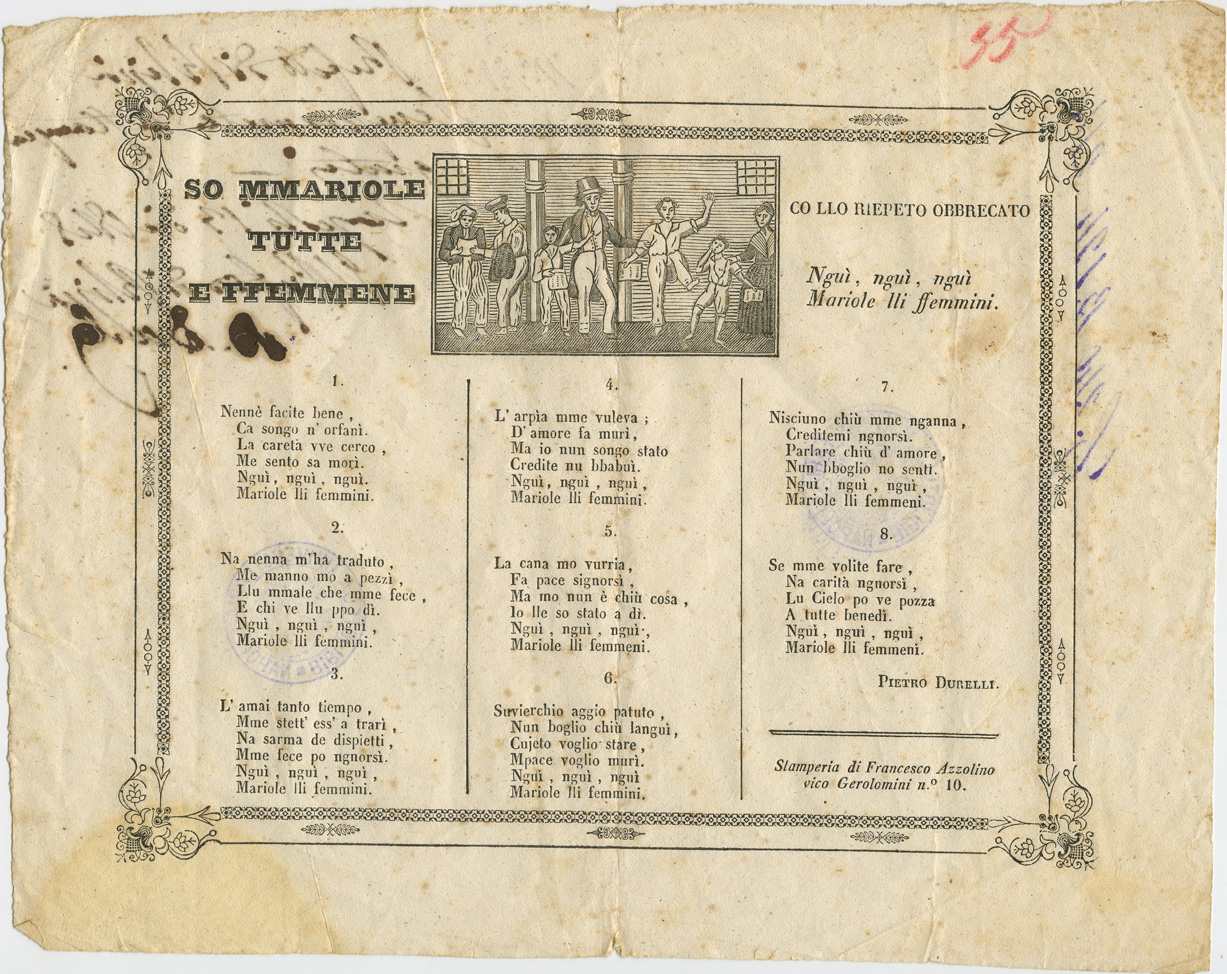 35
SO MMARIOLE
TUTTE
E FFEMMENE
CO LLO RIEPETO OBBRECATO
Nguì, nguì, nguì
Mariole lli ffemmini.
1.
Nennè facite bene,
Ca songo n' orfanì.
La caretà vve cerco,
Me sento sa morì.
Nguì, nguì, nguì.
Mariole lli femmini.
2.
Na nenna m'ha traduto,
Me manno mo a pezzì,
Llu mmale che mme fece,
E chi ve llu ppo dì.
Nguì, nguì, nguì,
Mariole lli femmini.
3.
L' amai tanto tiempo,
Mme stett' ess' a trarì,
Na sarma de dispietti,
Mme fece po ngnorsì.
Nguì, nguì, nguì,
Mariole lli femmini.
4.
L' arpìa mme vuleva;
D' amore fa murì,
Ma io nun songo stato
Credite nu bbabuì.
Nguì, nguì, nguì,
Mariole lli femmini.
5.
La cana mo vurria,
Fa pace signorsì,
Ma mo nun è chiù cosa,
Io lle so stato a dì.
Nguì, nguì, nguì,
Mariole lli femmeni.
6.
Suvierchio aggio patuto,
Nun boglio chiù languì,
Cujeto voglio stare,
Mpace voglio murì.
Nguì, nguì, nguì
Mariole lli femmini.
7.
Nisciuno chiù mme nganna,
Creditemi ngnorsì.
Parlare chiù d' amore,
Nun bboglio no sentì.
Nguì, nguì, nguì,
Mariole lli femmeni.
8.
Se mme volite fare,
Na carità ngnorsì,
Lu Cielo po ve pozza
A tutte benedì.
Nguì, nguì, nguì,
Mariole lli femmeni.
PIETRO DURELLI.
Stamperia di Francesco Azzolino
vico Gerolomini n.º 10.